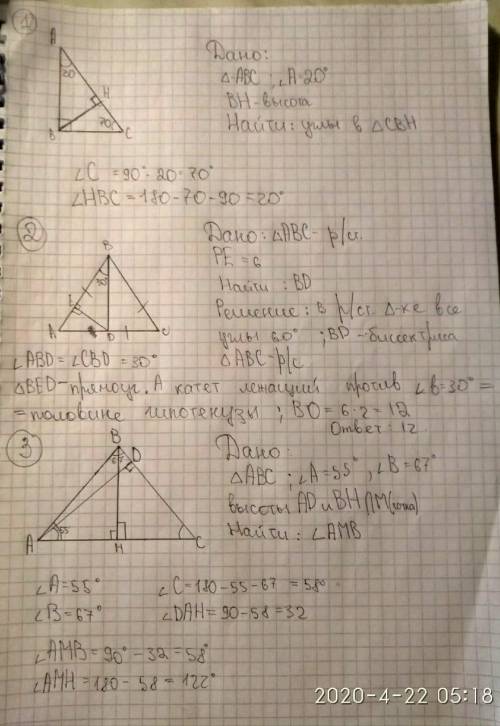 1)
A
20
H
B
70
C
Дано:
Δ-ABC ; ∠A=20°
BH-высота
Найти: углы в ΔCBH
∠C = 90°-20=70°
∠HBC = 180-70-90=20°
2
B
30
E
A
D
C
Дано: ΔABC- р/ст.
PE = 6
Найти : BD
Решение: в р/ст. Δ-ке все
углы 60° ; BD -биссектриса
ΔABC-р/с
∠ABD=∠CBD = 30°
ΔBED-прямоуг. А катет лежащий против ∠B=30°=
= половине гипотенузы ; BD = 6·2=12
Ответ: 12
3
B
D
67
55
A
M
C
Дано:
ΔABC ; ∠A=55° , ∠B= 67°
высоты AD и BH ∩M
Найти: ∠AMB
∠A=55° ∠C=180-55-67 =58°
∠B=67° ∠DAH=90-58=32
∠AMB=90°-32=58°
∠AMH=180- 58 = 122°
2020-4-22 05:18